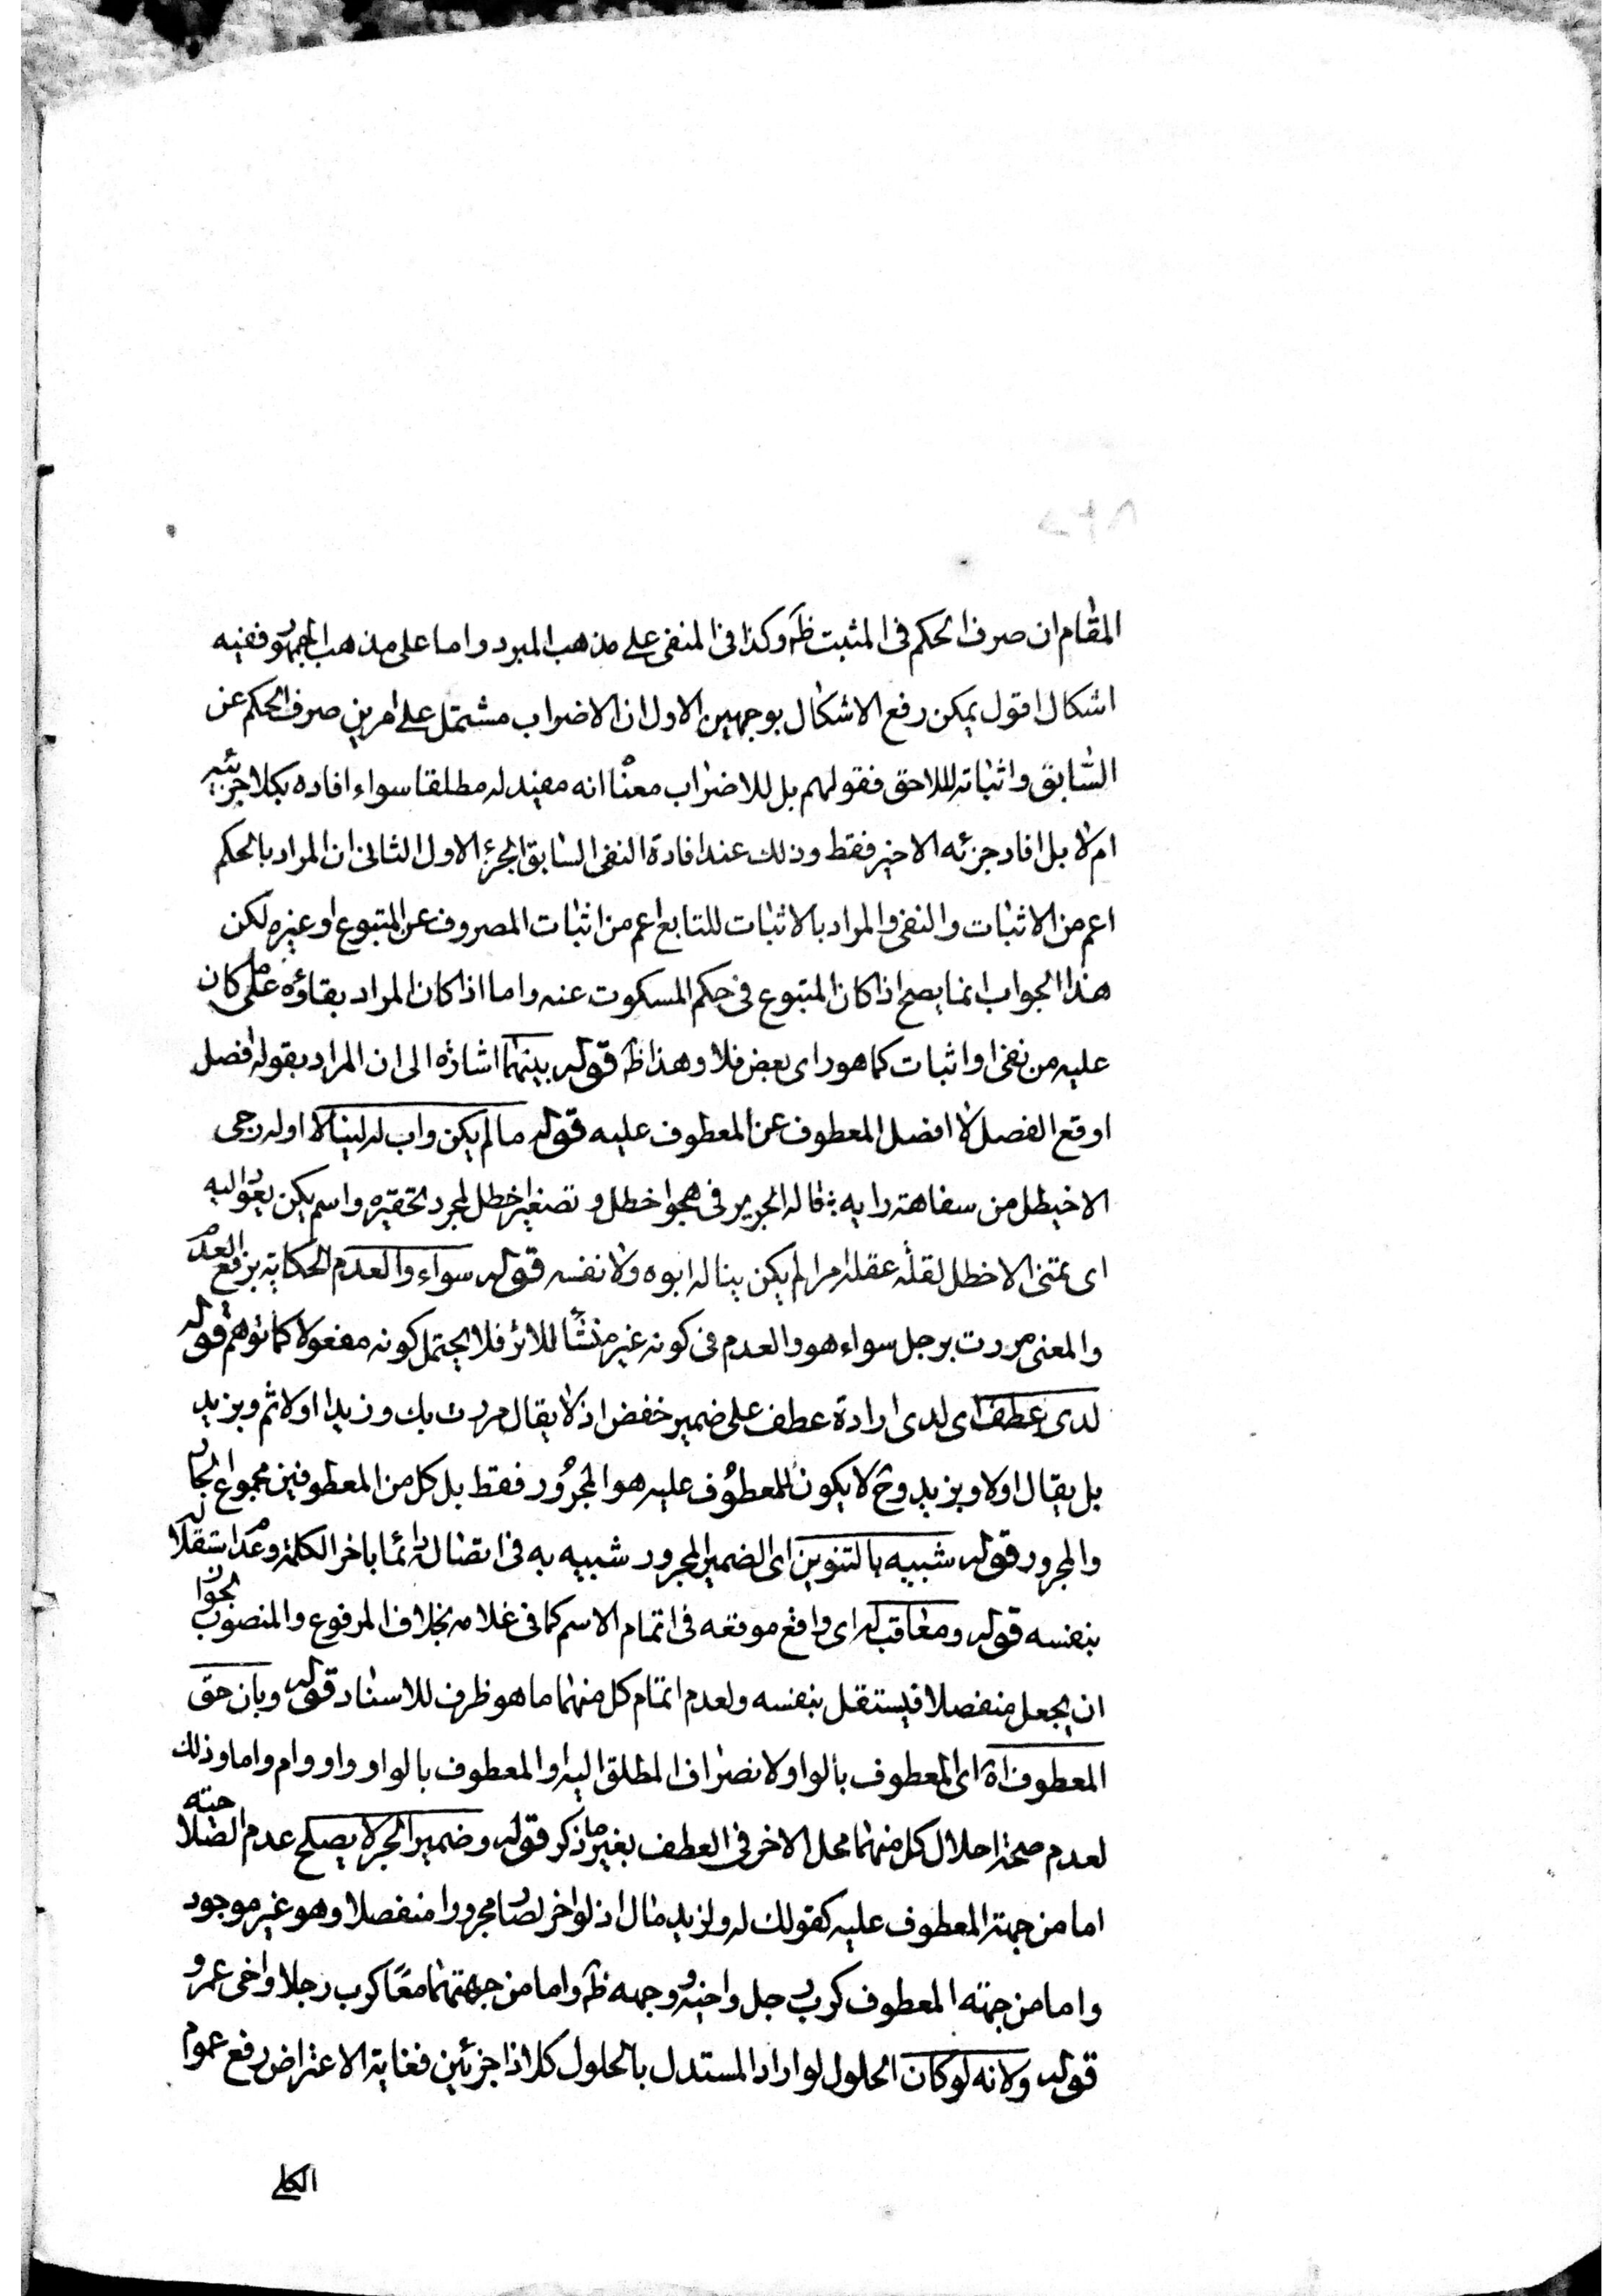 المقام ان صرف الحكم فى المثبت ظ وكذا فى المنفى على مذهب المبرد واما على مذهب الجمهور ففيه
اشكال اقول يمكن رفع الاشكال بوجهين الاول ان الاضراب مشتمل على امرين صرف الحكم عن
السابق واثباته لللاحق فقولهم بل للاضراب معناه انه مفيد له مطلقا سواء افاده بكلا جزئيه
ام لا بل افاد جزئه الاخير فقط وذلك عند افادة النفى السابق الجزء الاول الثانى ان المراد بالحكم
اعم من الاثبات والنفى والمراد بالاثبات للتابع اعم من اثبات المصروف عن المتبوع او غيره لكن
هذا الجواب انما يصح اذا كان المتبوع فى حكم المسكوت عنه واما اذا كان المراد بقاؤه على ما كان
عليه من نفى او اثبات كما هو راى بعض فلا وهذا ظ قوله بينهما اشارة الى ان المراد بقوله افصل
اوقع الفصل لا افصل المعطوف عن المعطوف عليه قوله ما لم يكن واب له لينالا اوله رجى
الاخيطل من سفاهة رايه ؛ قاله الجرير فى هجو اخطل و تصغير اخطل لمجرد تحقيره واسم يكن يعود اليه
اى تمنى الاخطل لقلة عقله امرا لم يكن يناله ابوه ولا نفسه قوله سواء والعدم الحكاية برفع العدم
والمعنى مررت برجل سواء هو والعدم فى كونه غير منشأ للاثر فلا يحتمل كونه مفعولا كما توهم قوله
لدى عطف اى لدى ارادة عطف على ضمير خفض اذ لا يقال مررت بك وزيدا اولا ثم وبزيد
بل يقال اولا وبزيد وح لا يكون للمعطوف عليه هو المجرور فقط بل كل من المعطوفين مجموع الجار
والمجرور قوله شبيه بالتنوين اى الضمير المجرور شبيه به فى اتصاله دائما باخر الكلمة وعدم استقلاله
بنفسه قوله ومعاقب له اى واقع موقعه فى اتمام الاسم كما فى غلامه بخلاف المرفوع والمنصوب لجواز
ان يجعل منفصلا فيستقل بنفسه ولعدم اتمام كل منهما ما هو ظرف للاسناد قوله وبان حق
المعطوف اه اى المعطوف بالواو لانصراف المطلق اليه او المعطوف بالواو واو وام واما وذلك
لعدم صحة احلال كل منهما محل الاخر فى العطف بغير ما ذكر قوله وضمير الجر لا يصلح عدم الصلاحيته
اما من جهة المعطوف عليه كقولك له ولزيد مال اذ لو اخر لصار مجرورا منفصلا وهو غير موجود
واما من جهته المعطوف كرب رجل واخيه وجهه ظ واما من جهتهما معا كرب رجلا واخى عمرو
قوله ولانه لو كان الحلول لو اراد المستدل بالحلول كلا اذا جزئين فغاية الاعتراض رفع عموم
الكلى